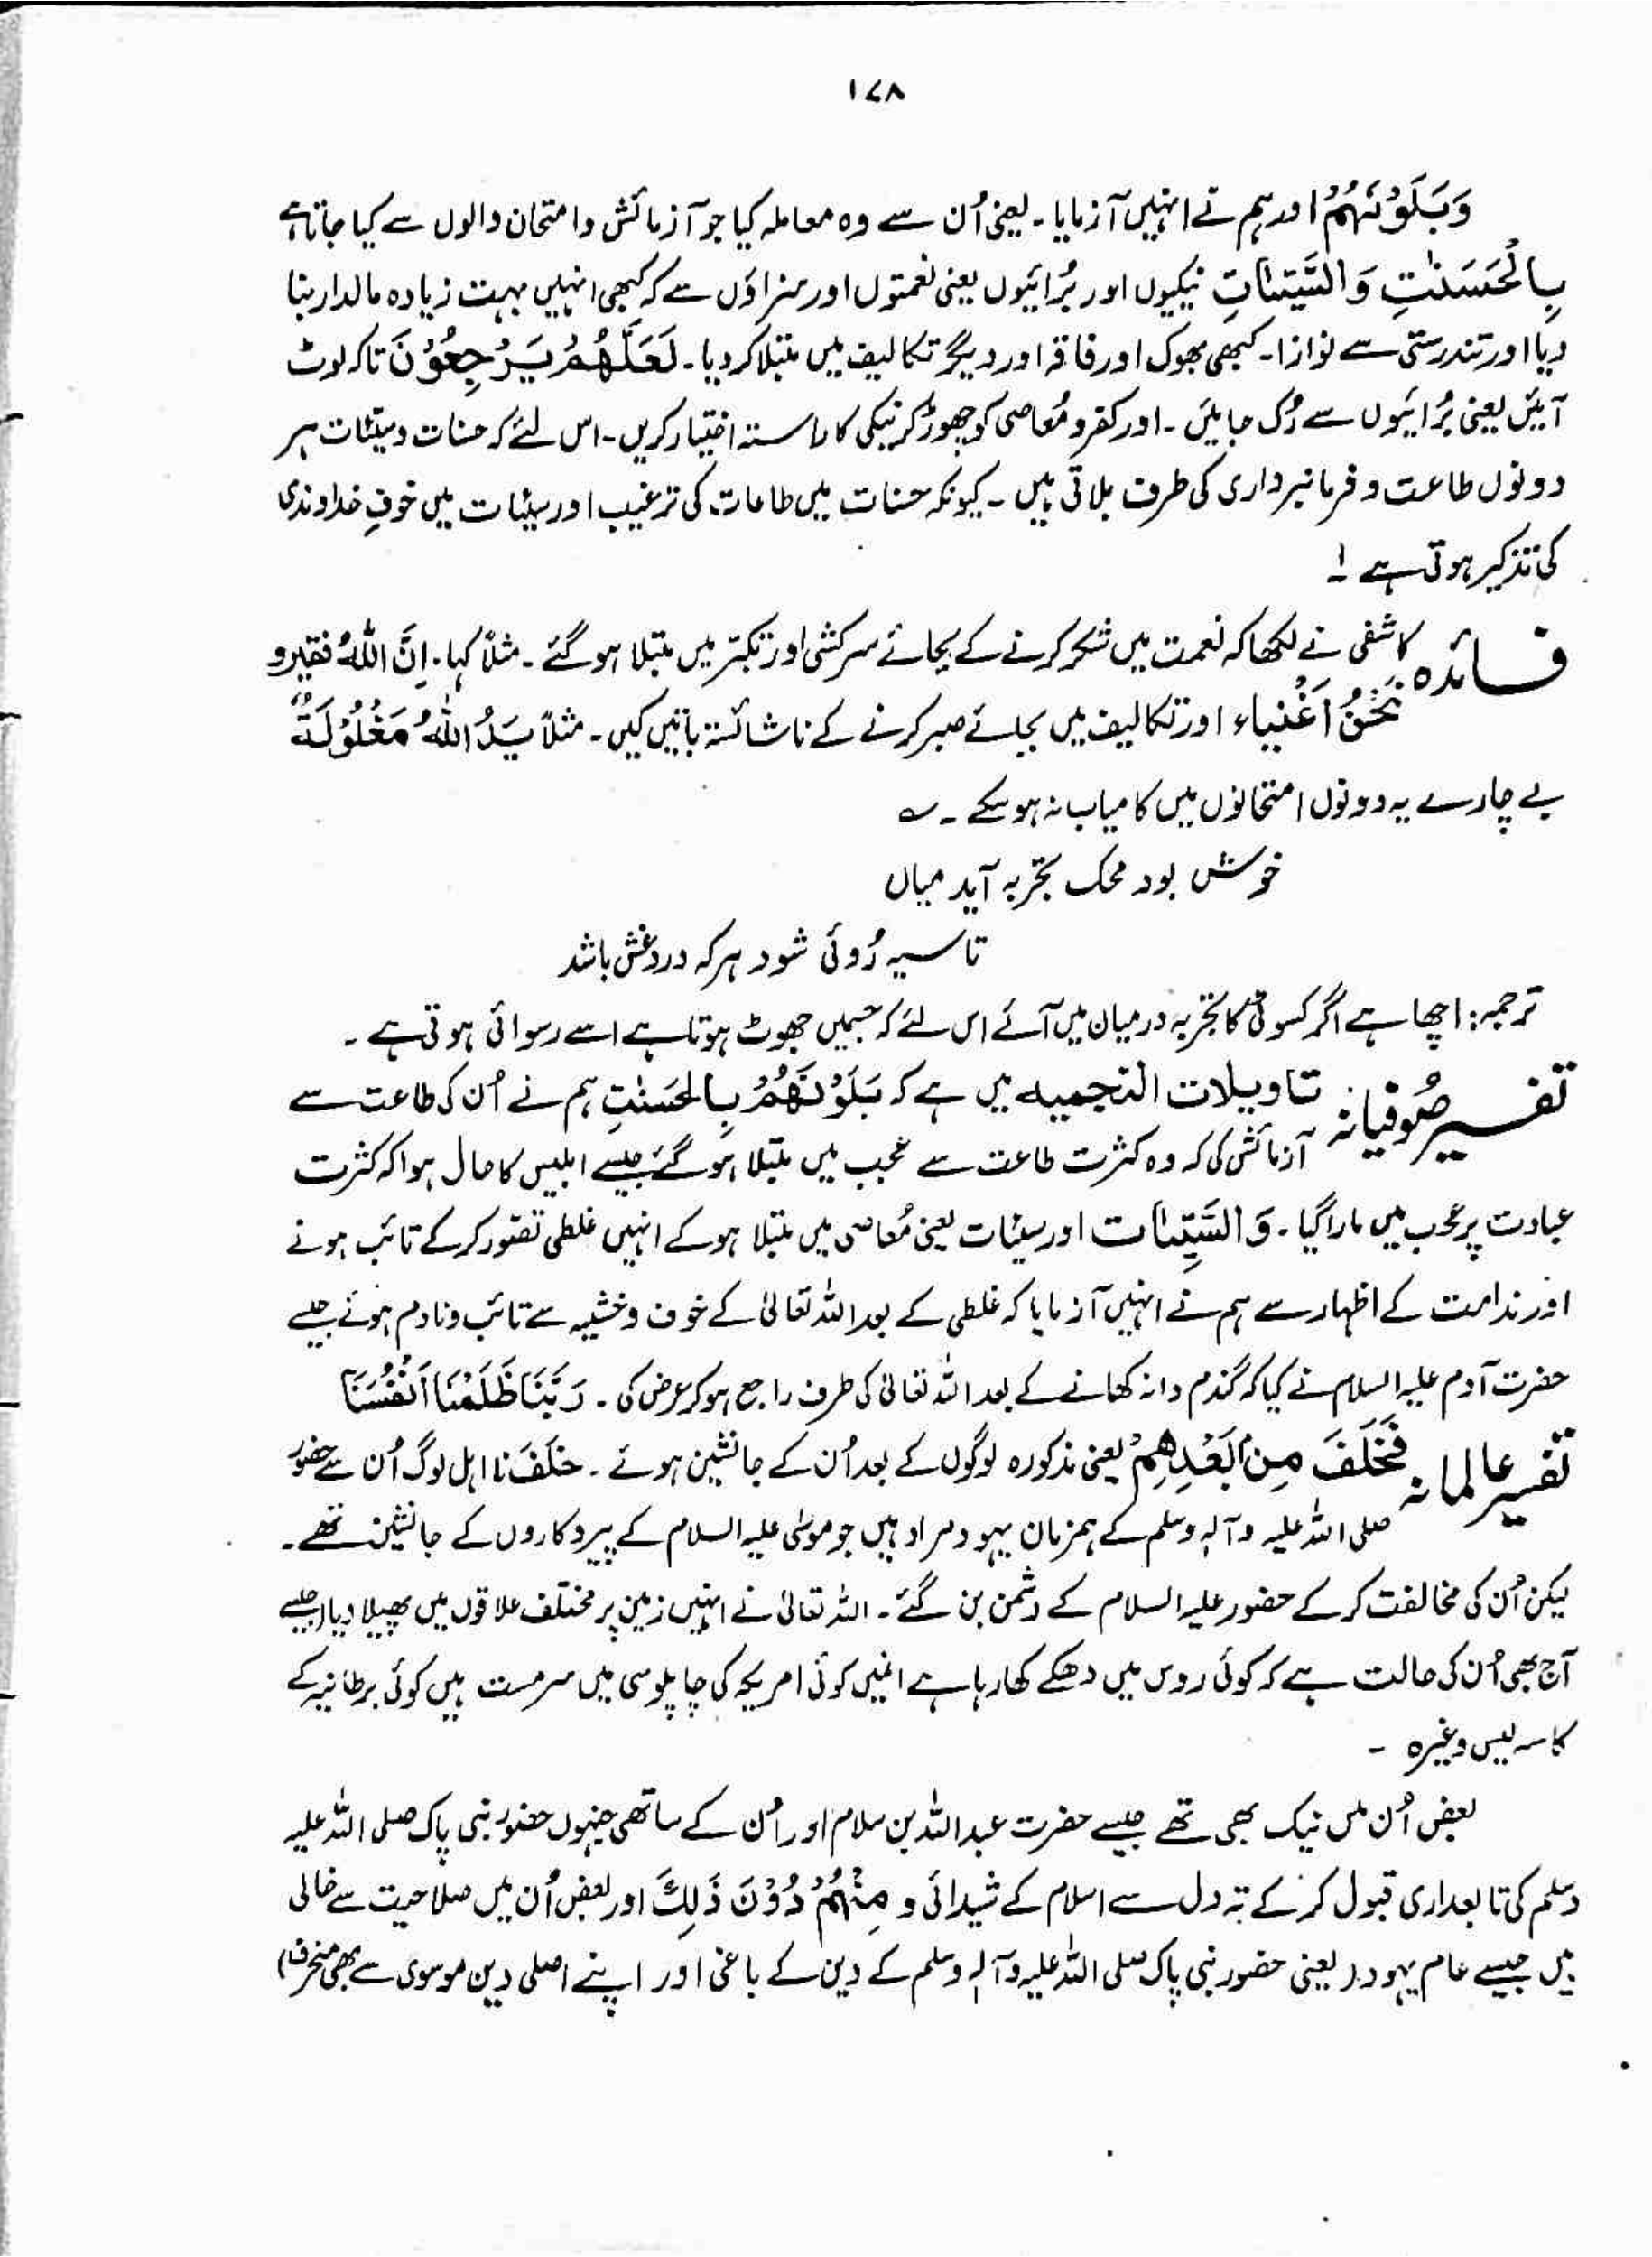 ۱۷۸
وَبَلَوْنٰهُمْ اور ہم نے انہیں آزمایا۔ یعنی اُن سے وہ معاملہ کیا جو آزمائش و امتحان والوں سے کیا جاتا ہے
بِالْحَسَنٰتِ وَالسَّیِّئٰاتِ نیکیوں اور بُرائیوں یعنی نعمتوں اور سزاؤں سے کہ کبھی انہیں بہت زیادہ مالدار بنا
دیا اور تندرستی سے نوازا۔ کبھی بھوک اور فاقہ اور دیگر تکالیف میں مبتلا کر دیا۔ لَعَلَّھُمْ یَرْجِعُوْنَ تاکہ لوٹ
آئیں یعنی بُرائیوں سے رُک جائیں۔ اور کفر و مُعاصی کو چھوڑ کر نیکی کا راستہ اختیار کریں۔ اس لئے کہ حسنات و سیئات ہر
دونوں طاعت و فرمانبرداری کی طرف بلاتی ہیں۔ کیونکہ حسنات میں طاعات کی ترغیب اور سیئات میں خوفِ خداوندی
کی تذکیر ہوتی ہے !۔
فائدہ کاشفی نے لکھا کہ نعمت میں شکر کرنے کے بجائے سرکشی اور تکبّر میں مبتلا ہو گئے۔ مثلاً کہا۔ اِنَّ اللّٰہُ فقیر و
نَحْنُ اَغْنیاء اور تکالیف میں بجائے صبر کرنے کے ناشائستہ باتیں کیں۔ مثلاً یَدُ اللّٰہُ مَغْلُوْلَۃٌ
بے چارے یہ دونوں امتحانوں میں کامیاب نہ ہو سکے۔ ؎
خوش بود محک تجربہ آید میاں
تا سیہ رُوئی شود ہر کہ دروغش باشد
ترجمہ: اچھا ہے اگر کسوٹی کا تجربہ درمیان میں آئے اس لئے کہ جسمیں جھوٹ ہوتا ہے اسے رسوائی ہوتی ہے۔
تفسیر صُوفیانہ تاویلات النجمیہ میں ہے کہ بَلَوْنٰھُمْ بِالحَسَنٰتِ ہم نے اُن کی طاعت سے
آزمائش کی کہ وہ کثرت طاعت سے عُجب میں مبتلا ہو گئے جیسے ابلیس کا حال ہوا کہ کثرت
عبادت پر عجب میں مارا گیا۔ وَالسَّیِّئٰات اور سیئات یعنی مُعاصی میں مبتلا ہو کے انہیں غلطی تصّور کر کے تائب ہونے
اور ندامت کے اظہار سے ہم نے انہیں آزمایا کہ غلطی کے بعد اللہ تعالیٰ کے خوف و خشیہ سے تائب و نادم ہوئے جیسے
حضرت آدم علیہ السلام نے کیا کہ گندم دانہ کھانے کے بعد اللہ تعالیٰ کی طرف راجع ہو کر عرض کی۔ رَبَّنَا ظَلَمْنَا اَنْفُسَنَا
تفسیر عالمانہ فَخَلَفَ مِنْ بَعْدِھِمْ یعنی مذکورہ لوگوں کے بعد اُن کے جانشین ہوئے۔ خَلَفَ نا اہل لوگ اُن سے حضور
صلی اللہ علیہ وآلہ وسلم کے ہمزمان یہود مراد ہیں جو موسٰی علیہ السلام کے پیروکاروں کے جانشین تھے۔
لیکن اُن کی مخالفت کر کے حضور علیہ السلام کے دشمن بن گئے۔ اللہ تعالیٰ نے انہیں زمین پر مختلف علاقوں میں پھیلا دیا (جیسے
آج بھی اُن کی حالت ہے کہ کوئی روس میں دھکے کھا رہا ہے انمیں کوئی امریکہ کی چاپلوسی میں سرمست ہیں کوئی برطانیہ کے
کاسہ لیس وغیرہ۔
بعض اُن میں نیک بھی تھے جیسے حضرت عبداللہ بن سلام اور اُن کے ساتھی جنہوں حضور نبی پاک صلی اللہ علیہ
وسلم کی تابعداری قبول کر کے تہ دل سے اسلام کے شیدائی و مِنْھُمْ دُوْنَ ذٰلِکَ اور بعض اُن میں صلاحیت سے خالی
ہیں جیسے عام یہود (یعنی حضور نبی پاک صلی اللہ علیہ وآلہ وسلم کے دین کے باغی اور اپنے اصلی دین موسوی سے بھی منحرف)